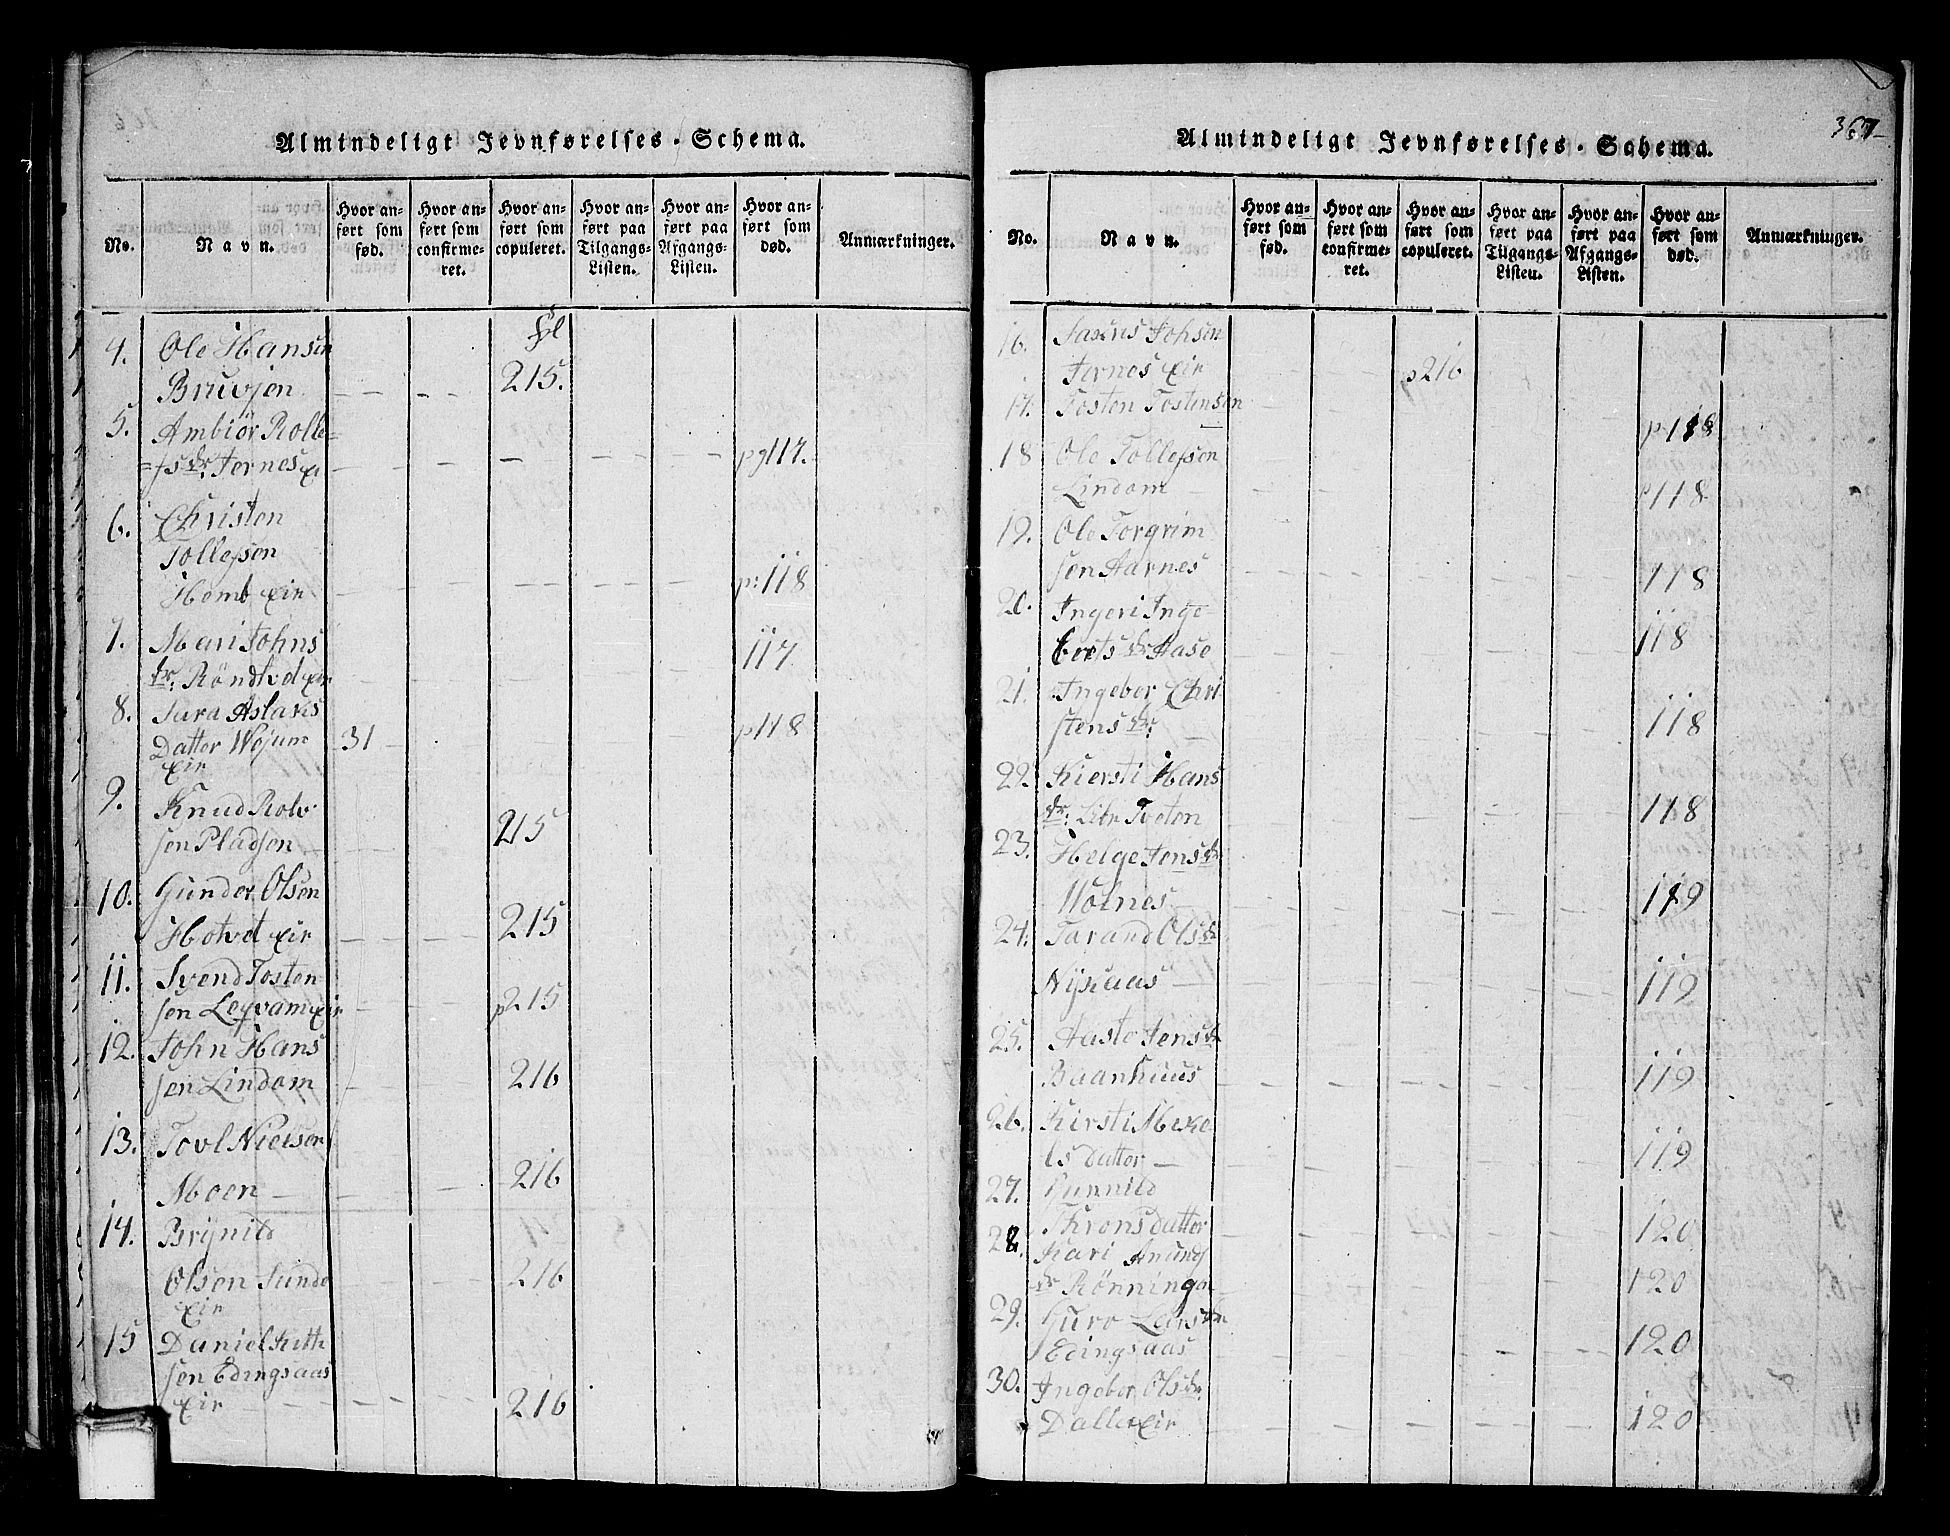 Almindeligt Jevnførelses-Schema.
No.
Navn.
Hvor anført som fød.
Hvor anført som confirmeret.
Hvor anført som copuleret.
Hvor anført paa Tilgangs-Listen.
Hvor anført paa Afgangs-Listen.
Hvor anført som død.
Anmærkninger.
4. Ole Hansen
215.
5. Ambiör Rolle=
=fs dr. Jernes p 117.
6. Christen
Tollefsen
Homb Eir p: 118
7. Mari Johns
dr. Eir 117
8. Aslaks
Datter 31 p118
Eir
9. Knud Rolv
sen Pladsen 215
10. Gunder Olsen
Eir 215
11. Svend Tosten
sen p215
12. John Hans
sen Lindom 216
13. Nielsen
Moen 216
14. Brynild
Olsen Sunde 216
Eir
15 Daniel
sen Edingsaas
Eir 216
367
Almindeligt Jevnførelses-Schema.
No.
Navn.
Hvor anført som fød.
Hvor anført som confirmeret.
Hvor anført som copuleret.
Hvor anført paa Tilgangs-Listen.
Hvor anført paa Afgangs-Listen.
Hvor anført som død.
Anmærkninger.
16. Johsen
Jernes Eir p216
17. Tosten Tostensen
p118
18 Ole Tollefsen
Lindom p118
19. Ole Torgrim
sen Aarnes 118
20. Ingeri Inge
brets dr Aase 118
21. Ingebor Chri
stens dr. 118
22. Kiersti Hans
dr. Tveten 118
23. Helge Jens dr
119
24. Tarand Ols dr
119
25. Aaste Jens dr
Baanhuus 119
26. Kirsti Meke
ls datter 119
27. Gunnild
Throns datter 120
28. Kari
dr Rönningen 120
29. Guro Lars dr
Edingsaas 120
30. Ingebor Ols dr.
Eir 120